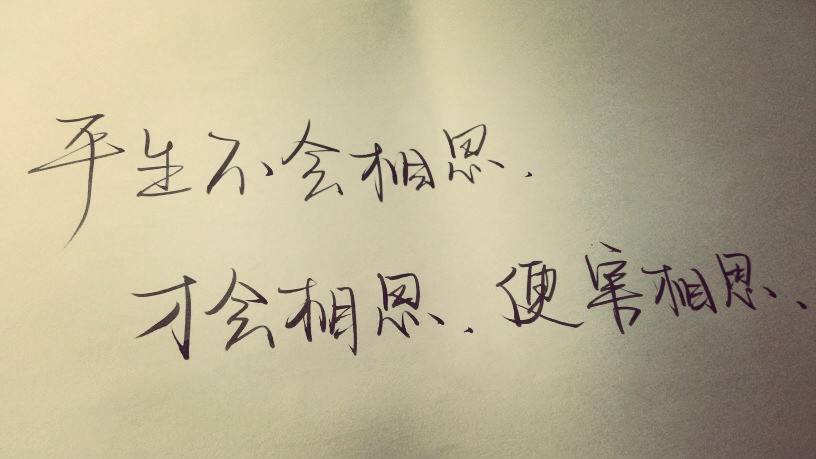 平生不会相思.
才会相思、便害相思、